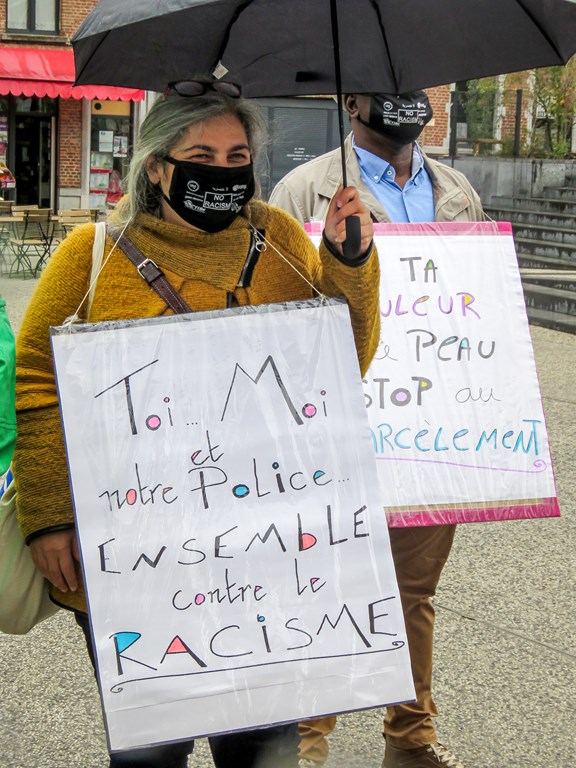 NO
RACISM
NO
RACISM
Toi... Moi
et
notre Police...
ENSEMBLE
contre le
RACISME
TA
ULEUR
PEAU
STOP au
ARCÈLEMENT